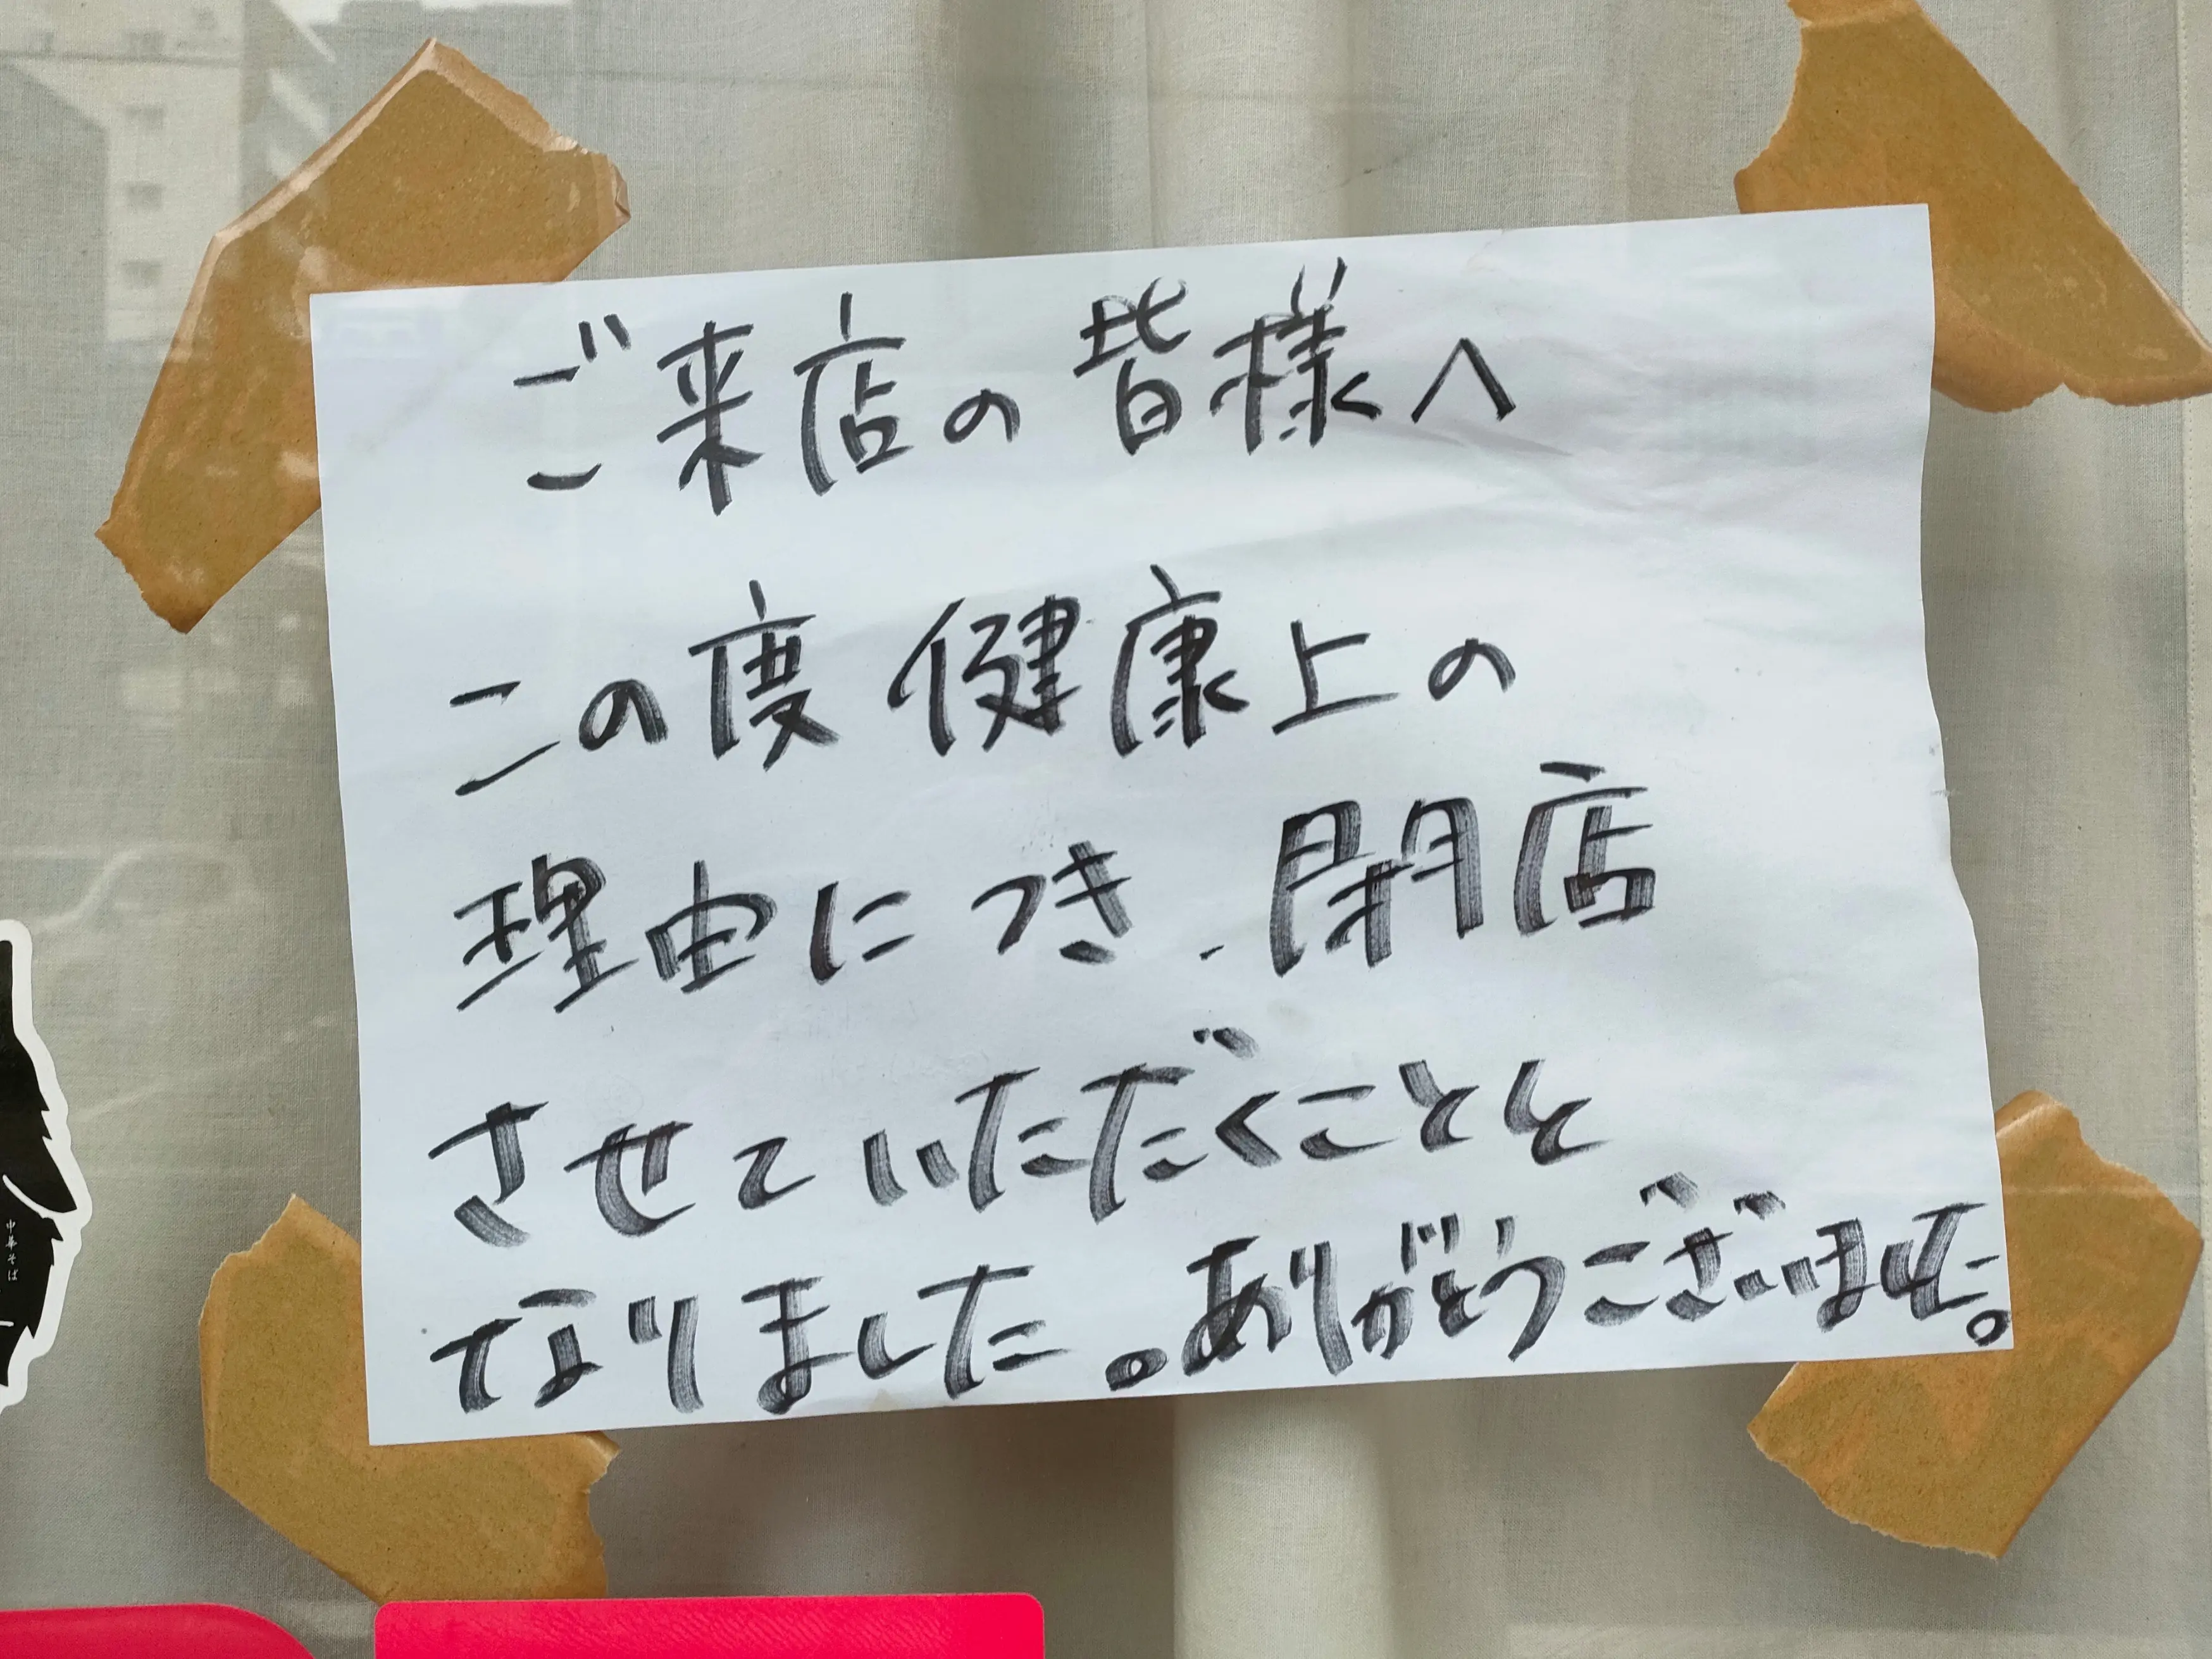 ご来店の皆様へ
この度 健康上の
理由につき、閉店
させていただくことと
なりました。ありがとうございました。
中華そば